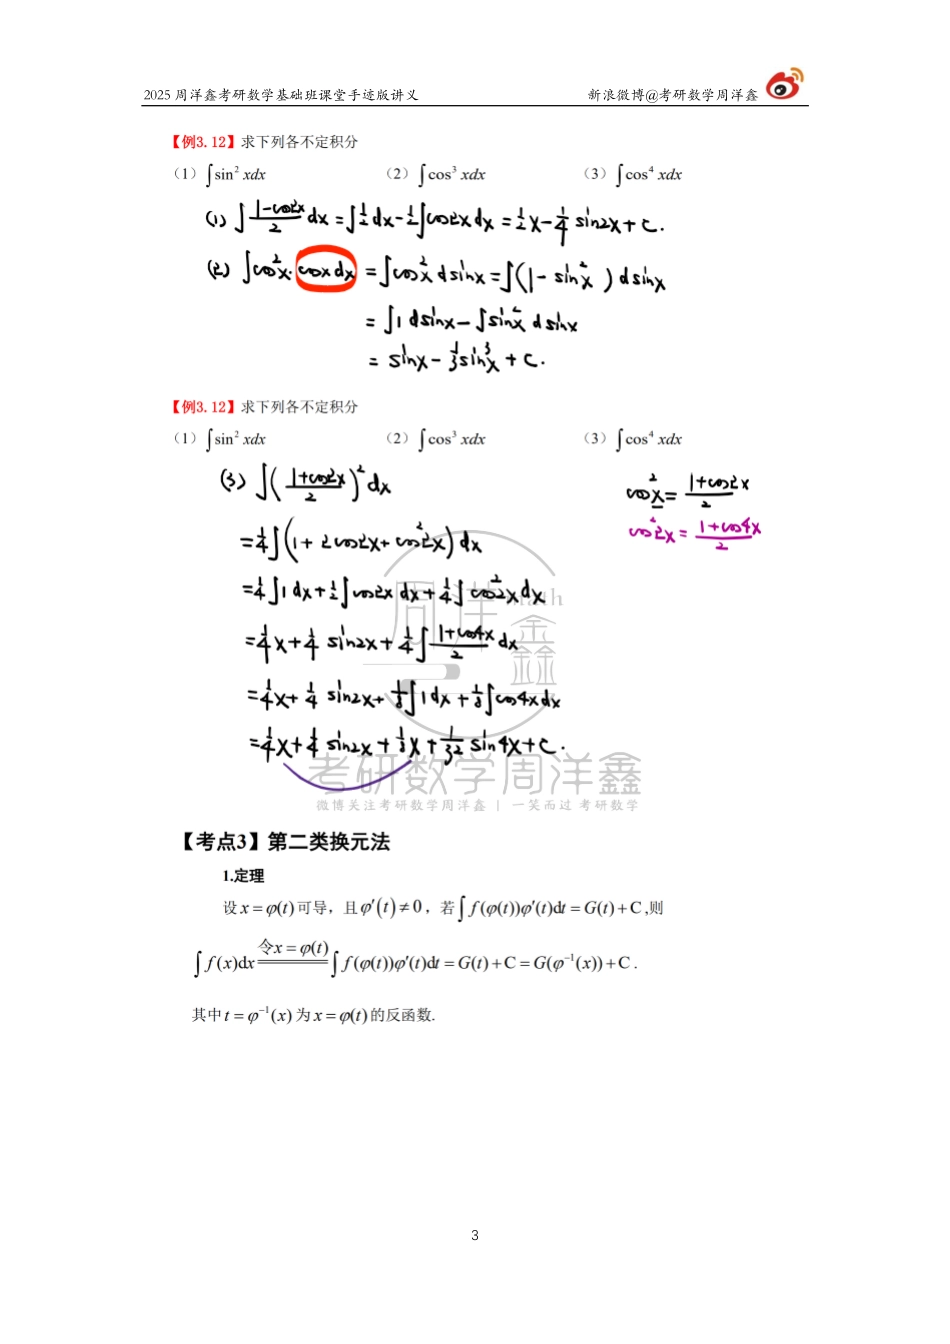 2025 周洋鑫考研数学基础班课堂手迹版讲义 新浪微博@考研数学周洋鑫
【例3.12】求下列各不定积分
（1）∫sin² xdx （2）∫cos³ xdx （3）∫cos⁴ xdx
(1) ∫ (1-cos2x)/2 dx = ∫ 1/2 dx - 1/2 ∫cos2x dx = 1/2 x - 1/4 sin2x + C.
(2) ∫cos²x · cosx dx = ∫cos²x dsinx = ∫(1 - sin²x) dsinx
= ∫1 dsinx - ∫sin²x dsinx
= sinx - 1/3 sin³x + C.
【例3.12】求下列各不定积分
（1）∫sin² xdx （2）∫cos³ xdx （3）∫cos⁴ xdx
(3) ∫( (1+cos2x)/2 )² dx
cos²x = (1+cos2x)/2
cos²2x = (1+cos4x)/2
= 1/4 ∫(1 + 2cos2x + cos²2x) dx
= 1/4 ∫1 dx + 1/2 ∫cos2x dx + 1/4 ∫cos²2x dx
= 1/4 x + 1/4 sin2x + 1/4 ∫ (1+cos4x)/2 dx
= 1/4 x + 1/4 sin2x + 1/8 ∫1 dx + 1/8 ∫cos4x dx
= 1/4 x + 1/4 sin2x + 1/8 x + 1/32 sin4x + C.
周洋鑫 math
考研数学周洋鑫
微博关注考研数学周洋鑫 | 一笑而过 考研数学
【考点3】第二类换元法
1.定理
设 x = φ(t) 可导，且 φ′(t) ≠ 0，若 ∫ f(φ(t))φ′(t)dt = G(t) + C ,则
∫ f(x)dx 令x = φ(t) ∫ f(φ(t))φ′(t)dt = G(t) + C = G(φ⁻¹(x)) + C .
其中 t = φ⁻¹(x) 为 x = φ(t) 的反函数.
3